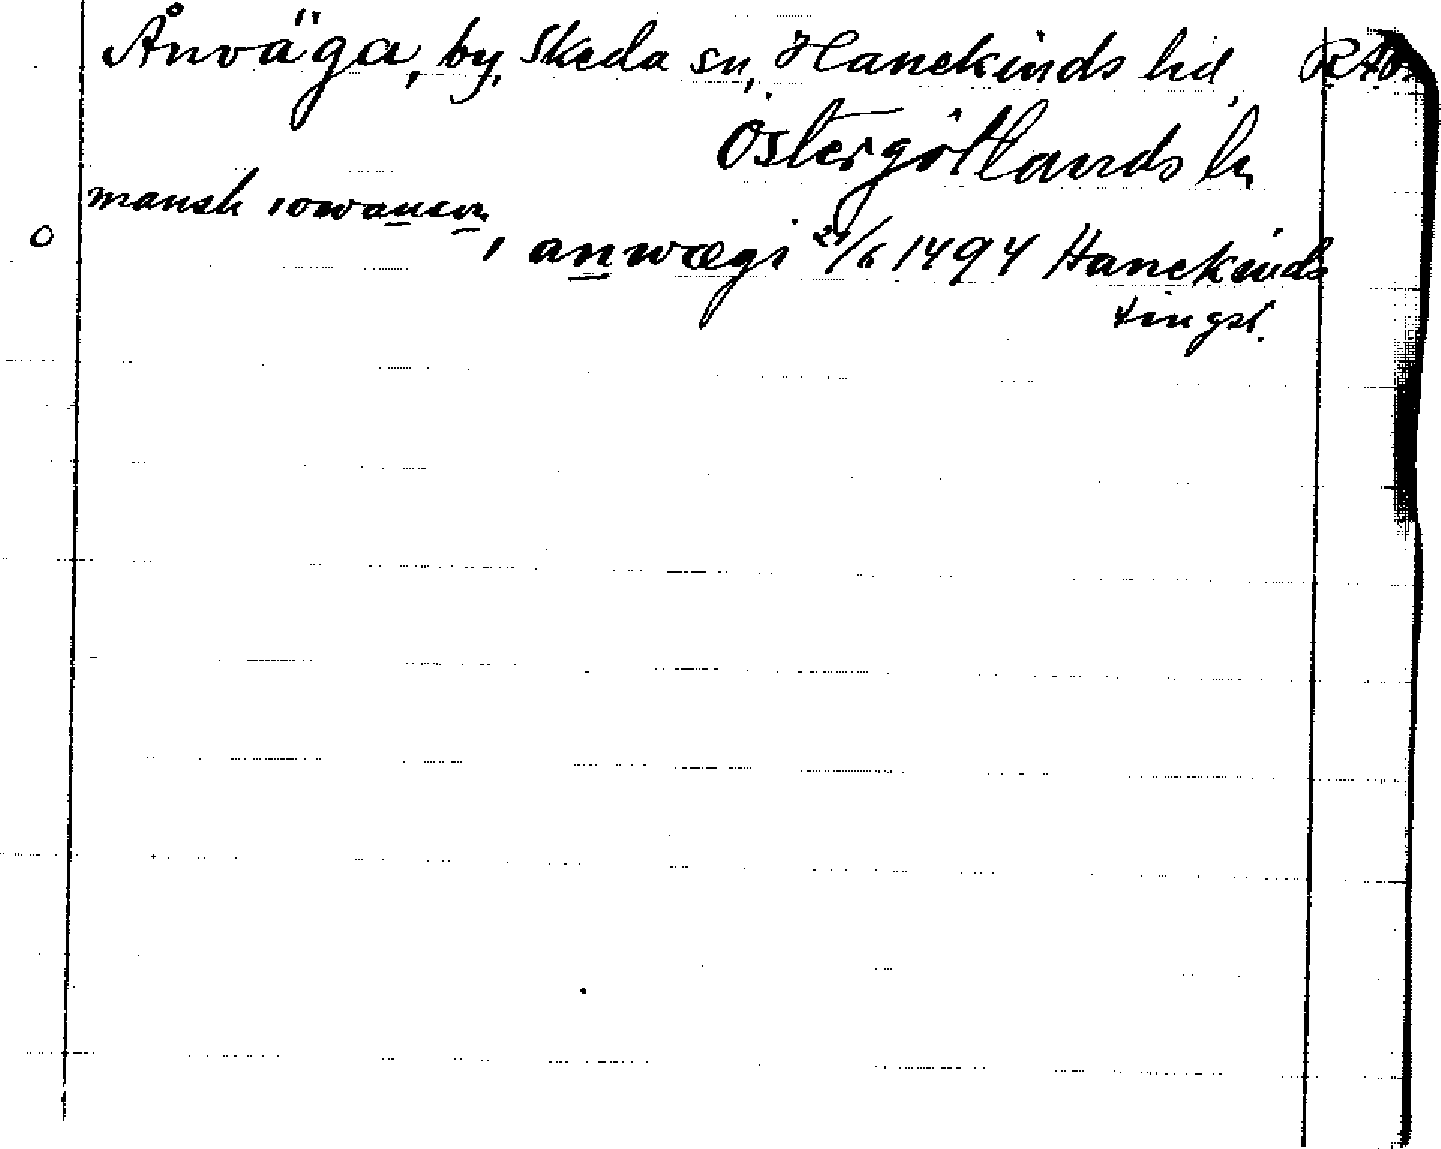 Ånväga, by, Skeda sn, Hanekinds hd, RAP
Östergötlands l.
mansk iowanson, anwægi 24/6 1494 Hanekinds
tingsl.
o